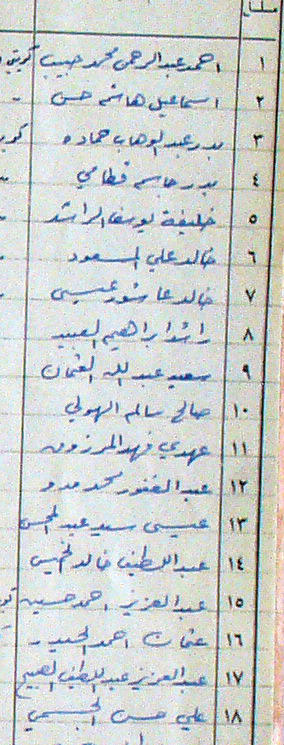 مسلسل
١ احمد عبد الرحمن محمد حبيب كويتي
٢ اسماعيل هاشم حسن
٣ بدر عبد الوهاب حماده
٤ بدر جاسم قطامي
٥ خليفة يوسف الراشد
٦ خالد علي المسعود
٧ خالد عاشور عيسى
٨ راشد ابراهيم العبيد
٩ سعيد عبد الله العثمان
١٠ صالح سالم الهولي
١١ عهدي فهد المرزوق
١٢ عبد الغفور محمد
١٣ عيسى سيد عبد المحسن
١٤ عبد اللطيف خالد الخميس
١٥ عبد العزيز احمد حسين
١٦ عثمان احمد الحيدر
١٧ عبد العزيز عبد اللطيف
١٨ علي حسن